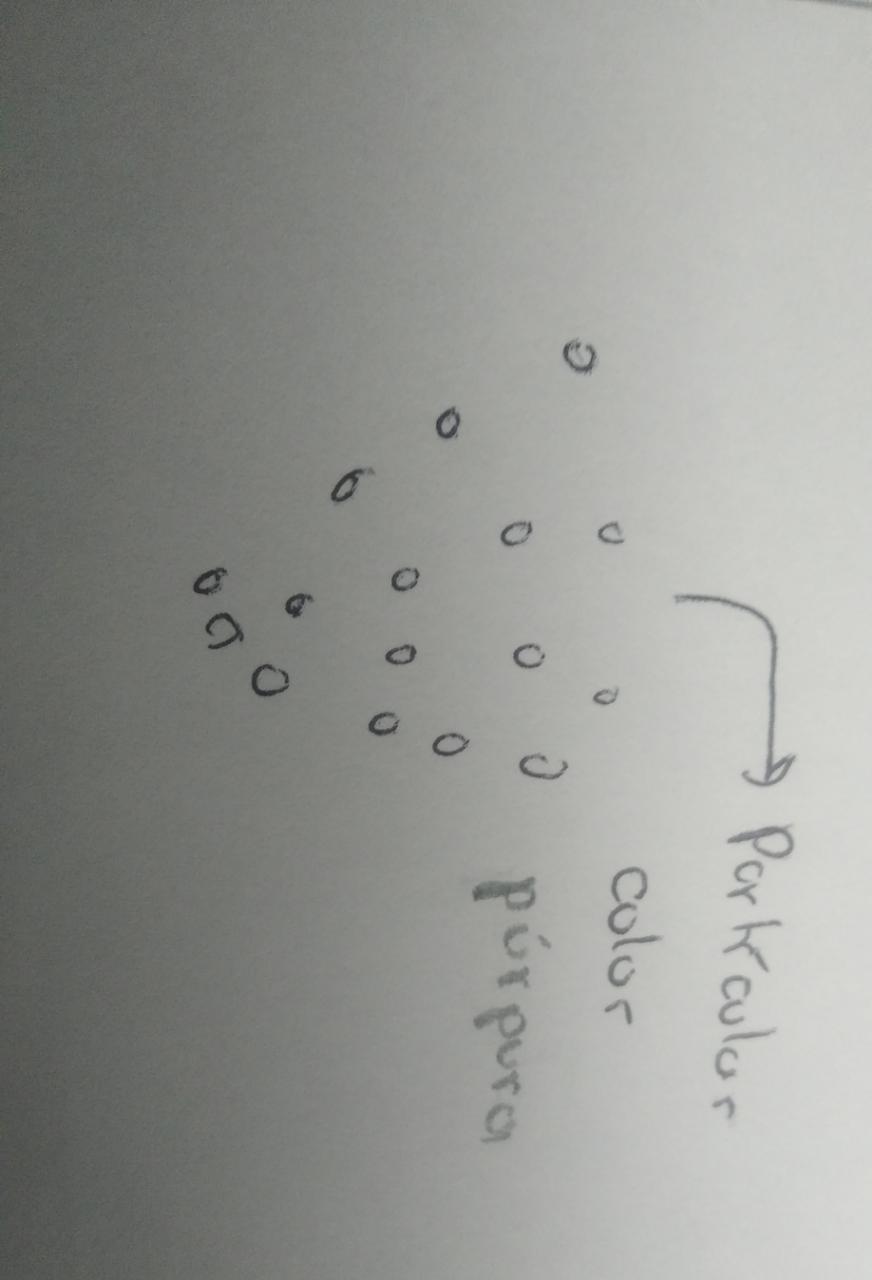 Partícular
color
púrpura